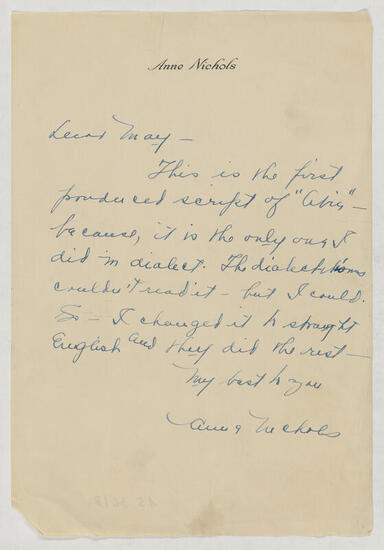 Anne Nichols
Dear May —
This is the first
produced script of "Abie" —
because, it is the only one I
did in dialect. The dialecticians
couldn't read it — but I could.
So — I changed it to straight
English and they did the rest —
My best to you
Anne Nichols